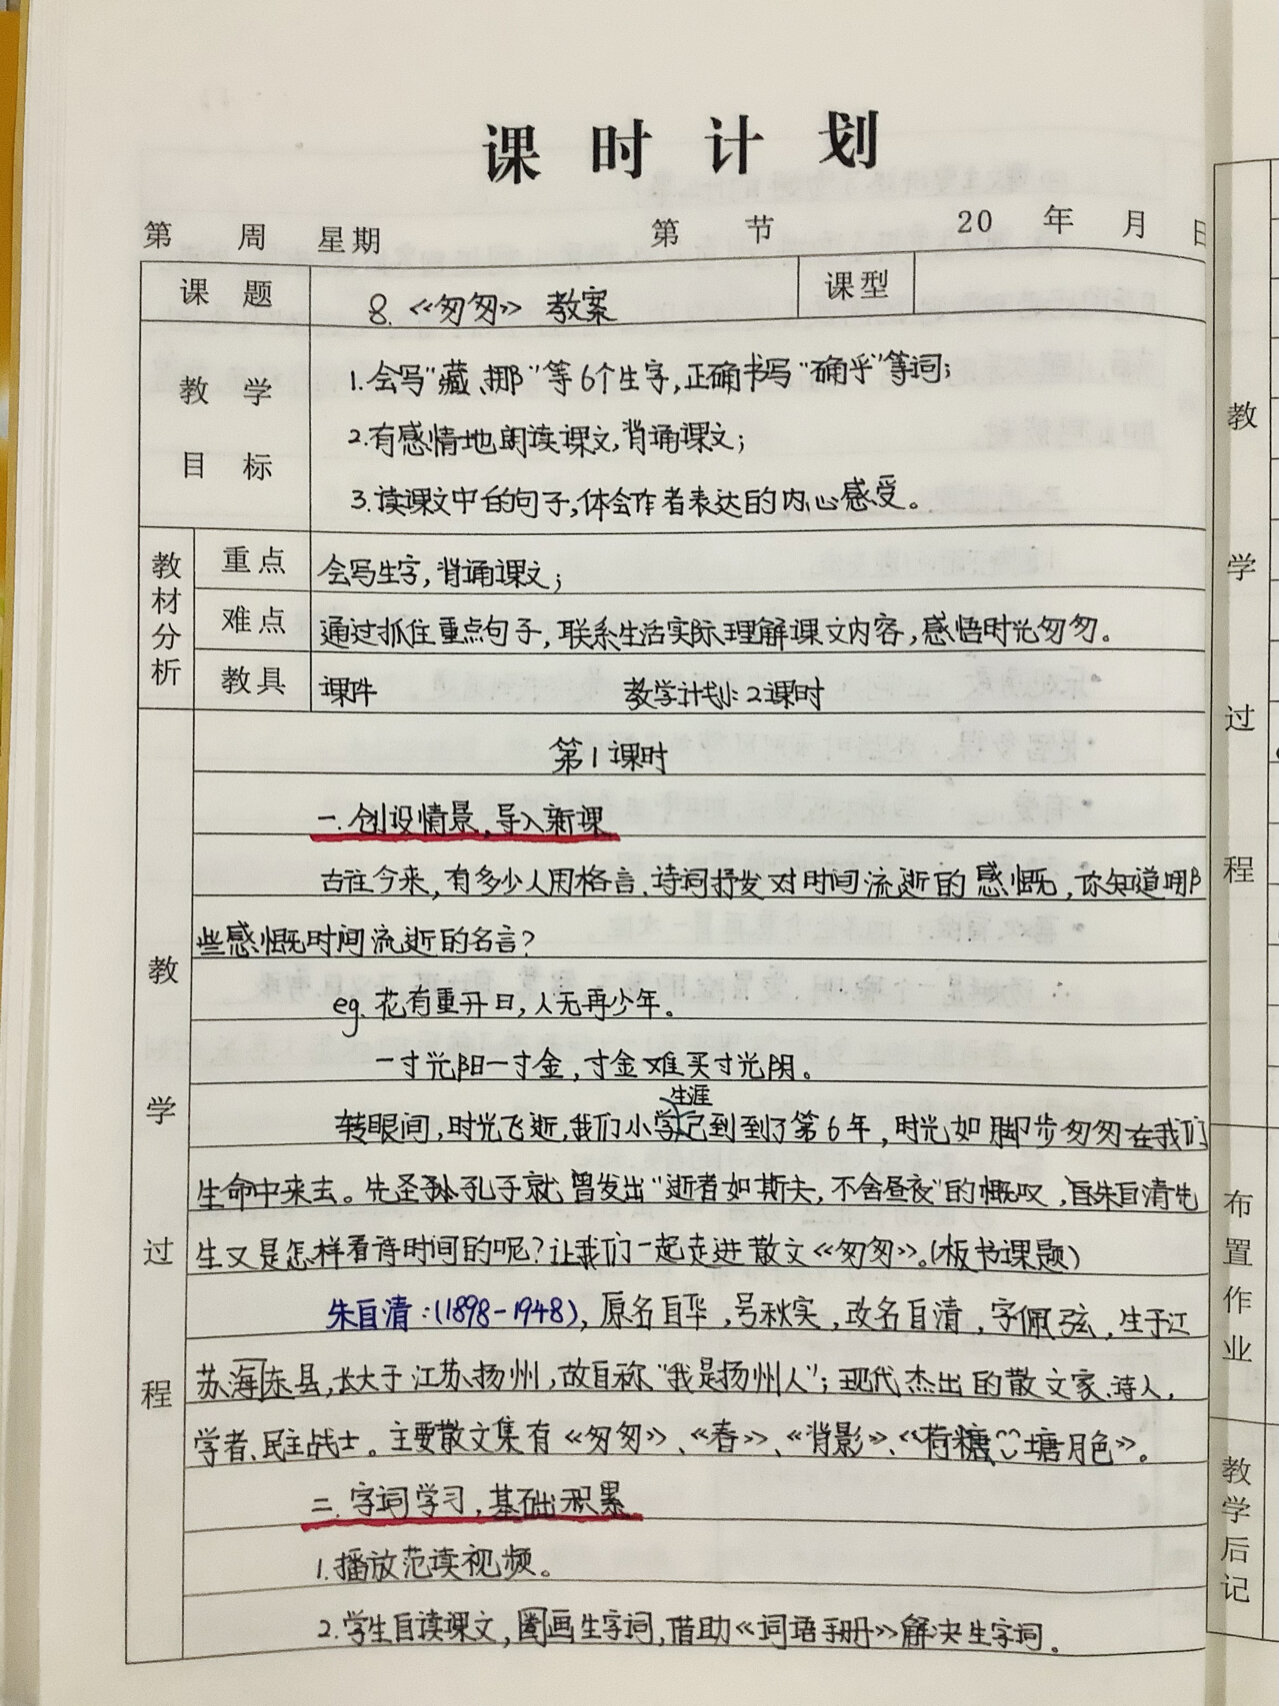 课时计划
第 周 星期 第 节 20 年 月 日
课题 8.《匆匆》 教案 课型
教学目标 1.会写"藏、挪"等6个生字,正确书写"确乎"等词;
2.有感情地朗读课文,背诵课文;
3.读课文中的句子,体会作者表达的内心感受。
教材分析 重点 会写生字,背诵课文;
难点 通过抓住重点句子,联系生活实际理解课文内容,感悟时光匆匆。
教具 课件 教学计划:2课时
教学过程
第1课时
一.创设情景,导入新课
古往今来,有多少人用格言、诗词抒发对时间流逝的感慨,你知道哪
些感慨时间流逝的名言?
eg.花有重开日,人无再少年。
一寸光阳一寸金,寸金难买寸光阴。
生涯
转眼间,时光飞逝,我们小学已到到了第6年,时光如脚步匆匆在我们
生命中来去。先圣孔子就曾发出"逝者如斯夫,不舍昼夜"的慨叹,朱自清先
生又是怎样看待时间的呢?让我们一起走进散文《匆匆》。(板书课题)
朱自清:(1898-1948),原名自华,号秋实,改名自清,字佩弦,生于江
苏海东县,长大于江苏扬州,故自称"我是扬州人";现代杰出的散文家、诗人,
学者、民主战士。主要散文集有《匆匆》、《春》、《背影》、《荷糖塘月色》。
二.字词学习,基础积累
1.播放范读视频。
2.学生自读课文,圈画生字词,借助《词语手册》解决生字词.
教学过程
布置作业
教学后记